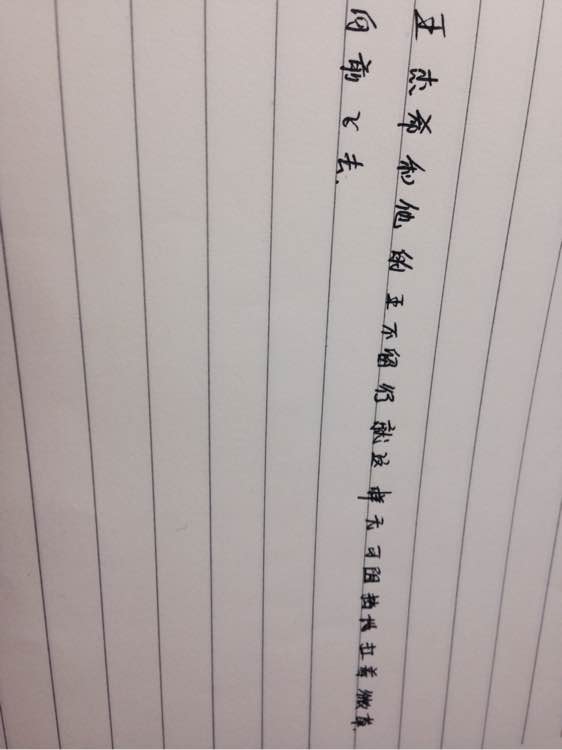 王杰希和他的王不留行就这样无可阻挡地扛着微草
向前飞去.